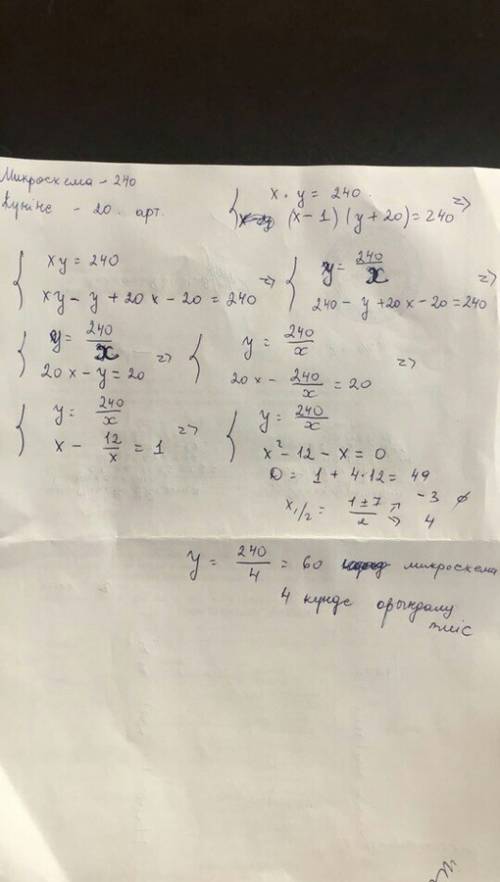 Микросхема - 240
Күніне - 20 арт.
x · y = 240
(x - 1)(y + 20) = 240 =>
xy = 240
xy - y + 20x - 20 = 240 =>
y = 240/x
240 - y + 20x - 20 = 240 =>
y = 240/x
20x - y = 20 =>
y = 240/x
20x - 240/x = 20 =>
y = 240/x
x - 12/x = 1 =>
y = 240/x
x² - 12 - x = 0
D = 1 + 4·12 = 49
x1/2 = (1 ± 7)/2 -3 ∅
4
y = 240/4 = 60 микросхема
4 күнде орындалу
тиіс